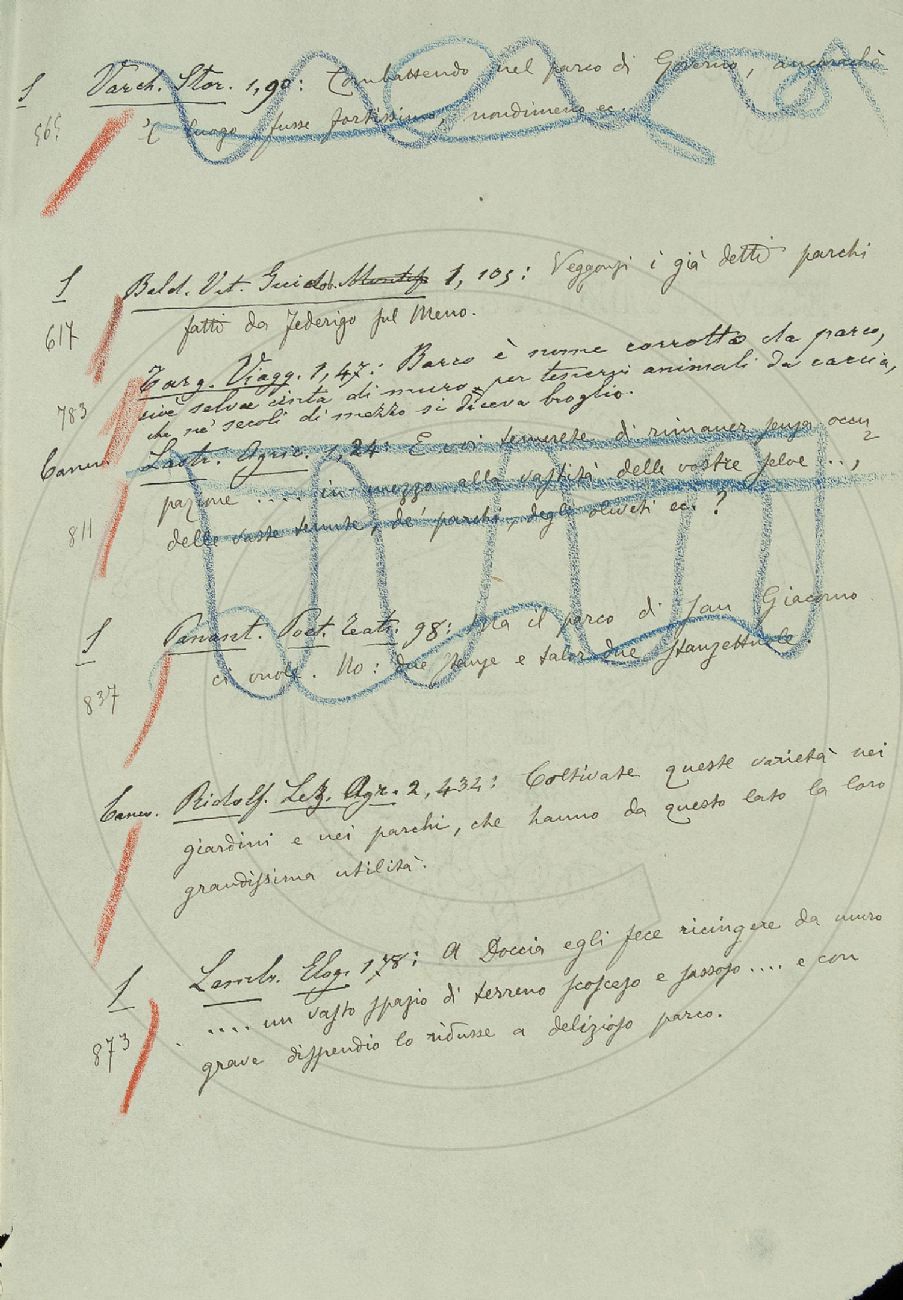 S Varch. Stor. 1, 90: Combattendo nel parco di Governo, ancorachè
565 'l luogo fusse fortissimo, nondimeno ec.
S Bald. Vit. Guidob. Montef. 1, 105: Veggonsi i già detti parchi
617 fatti da Federigo sul Meno.
Targ. Viagg. 1, 47: Barco è nome corrotto da parco,
783 cioè selva cinta di muro per tenersi animali da caccia,
che ne' secoli di mezzo si diceva broglio.
Canev. Lastr. Agric. 1, 24: E voi temerete di rimaner senza occu-
pazione .... in mezzo alla vastità delle vostre selve ...,
811 delle vaste tenute, de' parchi, degli oliveti ec. ?
S Panant. Poet. Teatr. 98: Ma il parco di San Giacomo
837 ci vuole. No: due stanze e talor due stanzettuole.
Canev. Ridolf. Lez. Agr. 2, 434: Coltivate queste varietà nei
giardini e nei parchi, che hanno da questo lato la loro
grandissima utilità.
S Lambr. Elog. 178: A Doccia egli fece ricingere da muro
873 .... un vasto spazio di terreno scosceso e sassoso .... e con
grave dispendio lo ridusse a delizioso parco.